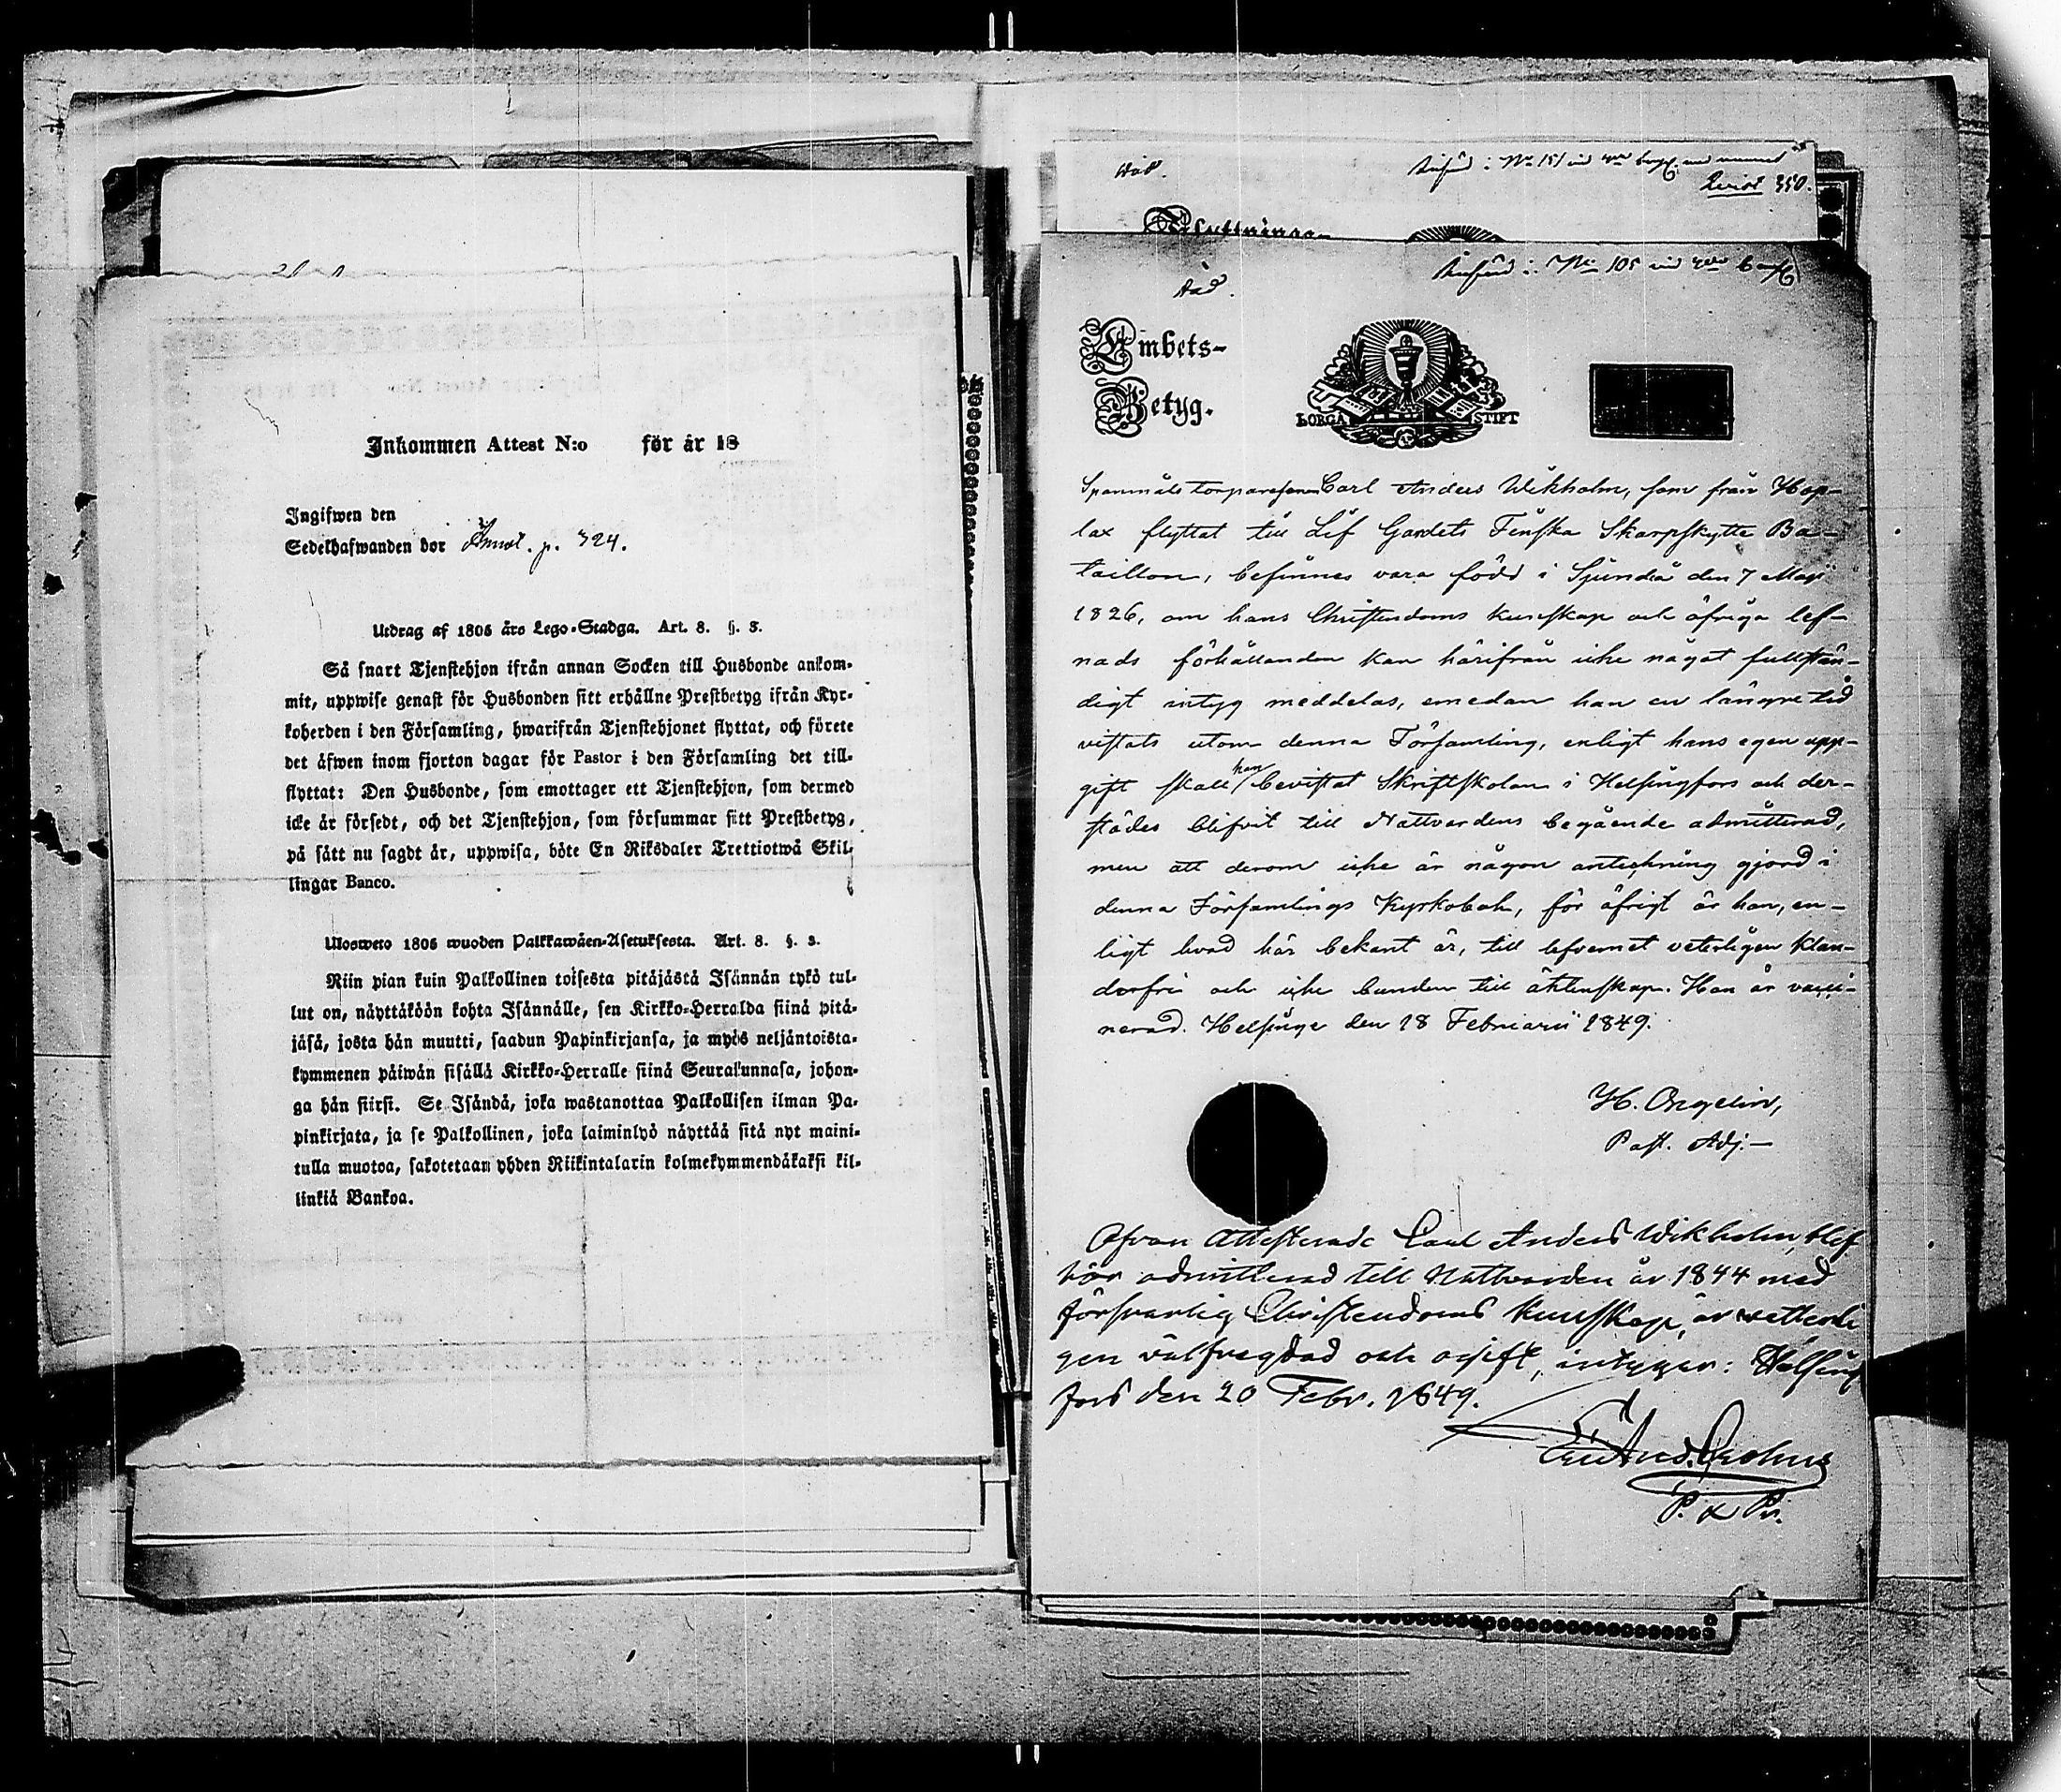 Inkommen Attest N:o för år 18
Ingifwen den
Sedelhafwanden bor Annot. p. 324.
Utdrag af 1805 års Lego-Stadga. Art. 8. §. 3.
Så snart Tjenstehjon ifrån annan Socken till Husbonde ankom-
mit, uppwise genast för Husbonden sitt erhållne Prestbetyg ifrån Kyr-
koherden i den Församling, hwarifrån Tjenstehjonet flyttat, och förete
det äfwen inom fjorton dagar för Pastor i den Församling det till-
flyttat: Den Husbonde, som emottager ett Tjenstehjon, som dermed
icke är försedt, och det Tjenstehjon, som försummar sitt Prestbetyg,
på sätt nu sagdt är, uppwisa, böte En Riksdaler Trettiotwå Skil-
lingar Banco.
Ulosweto 1805 wuoden Palkkawäen-Asetuksesta. Art. 8. §. 3.
Niin pian kuin Palkollinen toisesta pitäjästä Isännän tykö tul-
lut on, näyttäköön kohta Isännälle, sen Kirkko-Herralda siinä pitä-
jäsä, josta hän muutti, saadun Papinkirjansa, ja myös neljäntoista-
kymmenen päiwän sisällä Kirkko-Herralle siinä Seurakunnasa, johon-
ga hän siirsi. Se Isändä, joka wastanottaa Palkollisen ilman Pa-
pinkirjata, ja se Palkollinen, joka laiminlyö näyttää sitä nyt maini-
tulla muotoa, sakotetaan yhden Riikintalarin kolmekymmendäkaksi kil-
linkiä Bankoa.
N:o 151 vid
350.
Flyttnings-
N:o 105 vid
Embets-
Betyg.
BORGÅ STIFT
Spanmåls torparesonen Carl Anders Wikholm, som från Hop-
lax flyttat till Lif Gardets Finska Skarpskytte Ba-
taillon, befinnes vara född i Sjundeå den 7 Maji
1826, om hans Christendoms kunskap och öfriga lef-
nads förhållanden kan härifrån icke något fullstän-
digt intyg meddelas, emedan han en längre tid
vistats utom denna Församling, enligt hans egen upp-
gift skall han bevistat Skriftskolan i Helsingfors och der-
städes blifvit till Nattvardens begående admitterad,
men att derom icke är någon anteckning gjord i
denna Församlings Kyrkobok, för öfrigt är han, en-
ligt hvad här bekant är, till lefvernet veterligen klan-
derfri och icke bunden till äktenskap. Han är vacci-
nerad. Helsinge den 18 Februarii 1849.
H.
Past. Adj.
Ofvan Attesterade Carl Anders Wikholm, blef
här admitterad till Nattvarden år 1844 med
försvarlig Christendoms kunskap, är vetterli
gen välfregdad och ogift, intygar: Helsing
fors den 20 Febr. 1849.
And. Crohns
P.